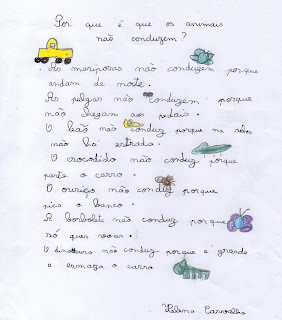 Por que é que os animais
não conduzem?
. As mariposas não conduzem porque
andam de noite.
As pulgas não conduzem porque
não chegam aos pedais.
O leão não conduz porque na selva
não há estrada.
O crocodilo não conduz porque
parte o carro.
O ouriço não conduz porque
pica o banco.
A borboleta não conduz porque
só quer voar.
O dinossauro não conduz porque é grande
e esmaga o carro
Helena Carvalho